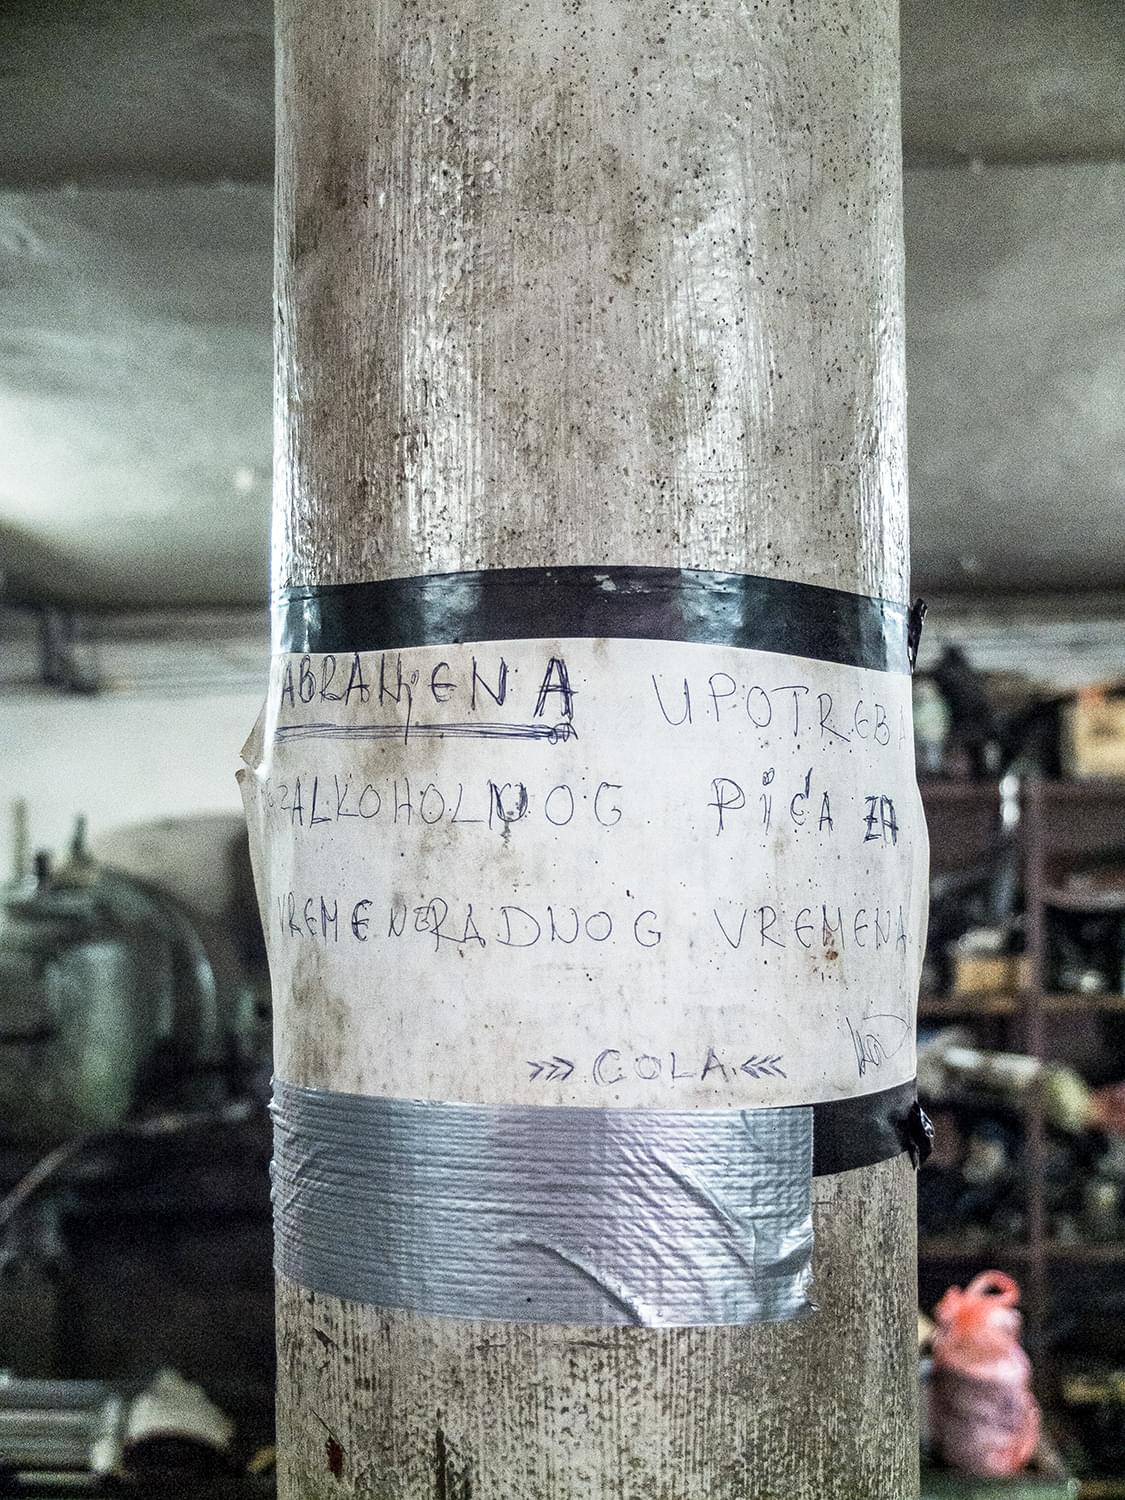 ABRANJENA UPOTREBA
ZALKOHOLNOG PIĆA ZA
VREME NERADNOG VREMENA
>>> COLA <<<